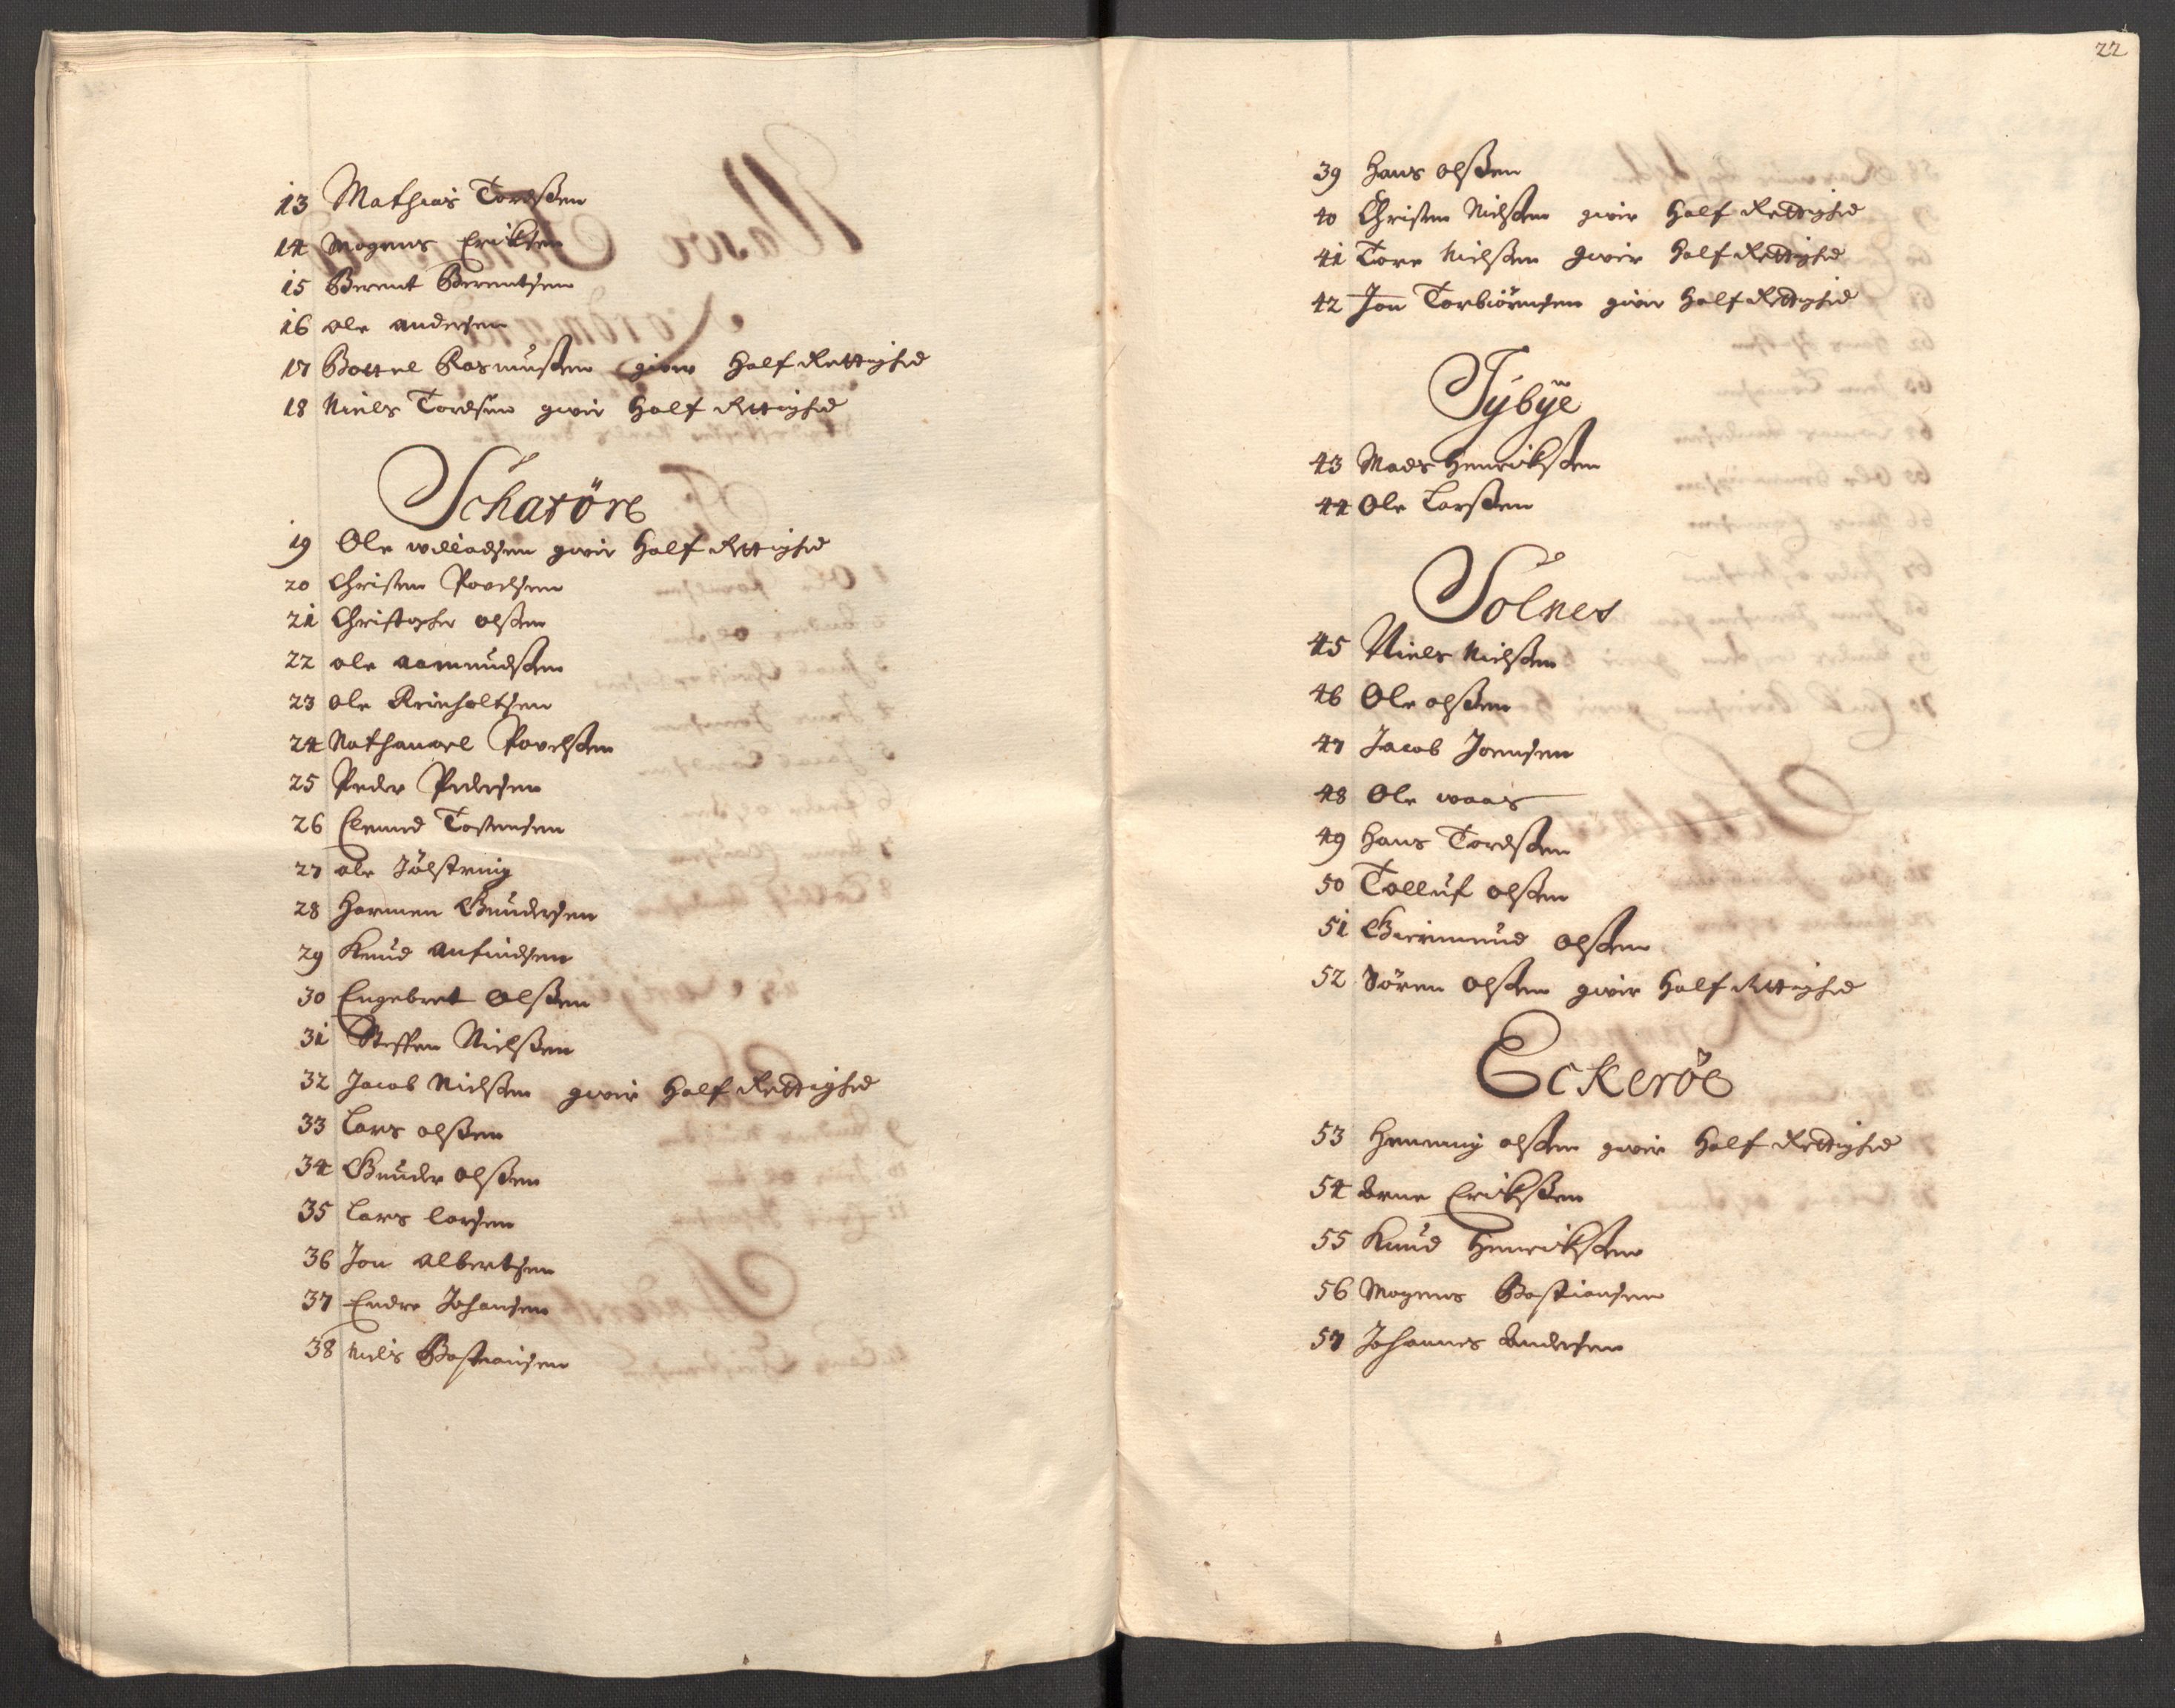 13 Mathias Tordßen
14 Mogens Ericksen
15 Berent Berentsen
16 ole andersen
17 Bottel Rasmußen giver Half Rettighed
18 Niels Tordsen giver Half Rettighed
Scharöre
19 Ole willadsen giver Half Rettighed
20 Christen Povelsen
21 Christopher olßen
22 ole aamundßen
23 ole Reinholtsen
24 Nathanael Povelßen
25 Peder Pedersen
26 Elemed Tostensen
27 ole Jölstring
28 Harmen Gundersen
29 Knud anfindsen
30 Engebret olßen
31 Steffen Nielßen
32 Jacob Nielßen giver Half Rettighed
33 Lars olßen
34 Gunder olßen
35 Lars larsen
36 Jon albertsen
37 Endre Johansen
38 Niels Bastiansen
22
39 Hans olßen
40 Christen Nielßen giver Half Rettighed
41 Tore Nielßen giver Half Rettighed
42 Jon Torbiörnsen giver Half Rettighed
Tybye
43 Mads Henrickßen
44 Ole Larßen
Solnes
45 Niels Nielßen
46 Ole olßen
47 Jacob Joensen
48 Ole waas
49 Hans Tordßen
50 Tolluf olßen
51 Geirmund olßen
52 Sören olßen giver Half Rettighed
Eckeröe
53 Henning olßen giver Half Rettighed
54 Arne Erickßen
55 Knud Henrickßen
56 Mogens Bastiansen
57 Johannes Andersen